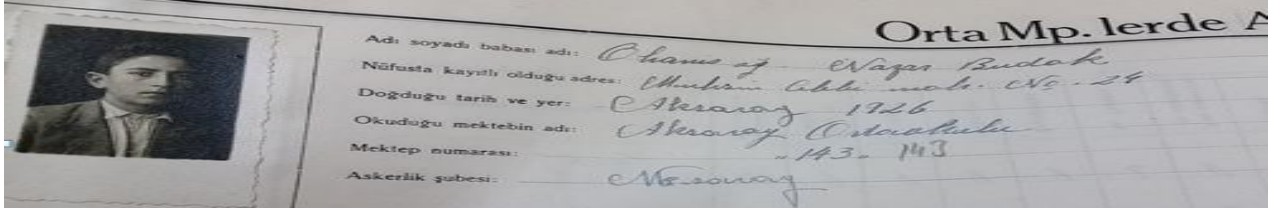 Orta Mp. lerde A
Adı soyadı babası adı: Ohanes oğ Nazar Budak
Nüfusta kayıtlı olduğu adres: Muhsin Çelebi mah. No. 24
Doğduğu tarih ve yer: Aksaray 1926
Okuduğu mektebin adı: Aksaray Ortaokulu
Mektep numarası: 143. 143
Askerlik şubesi: Aksaray